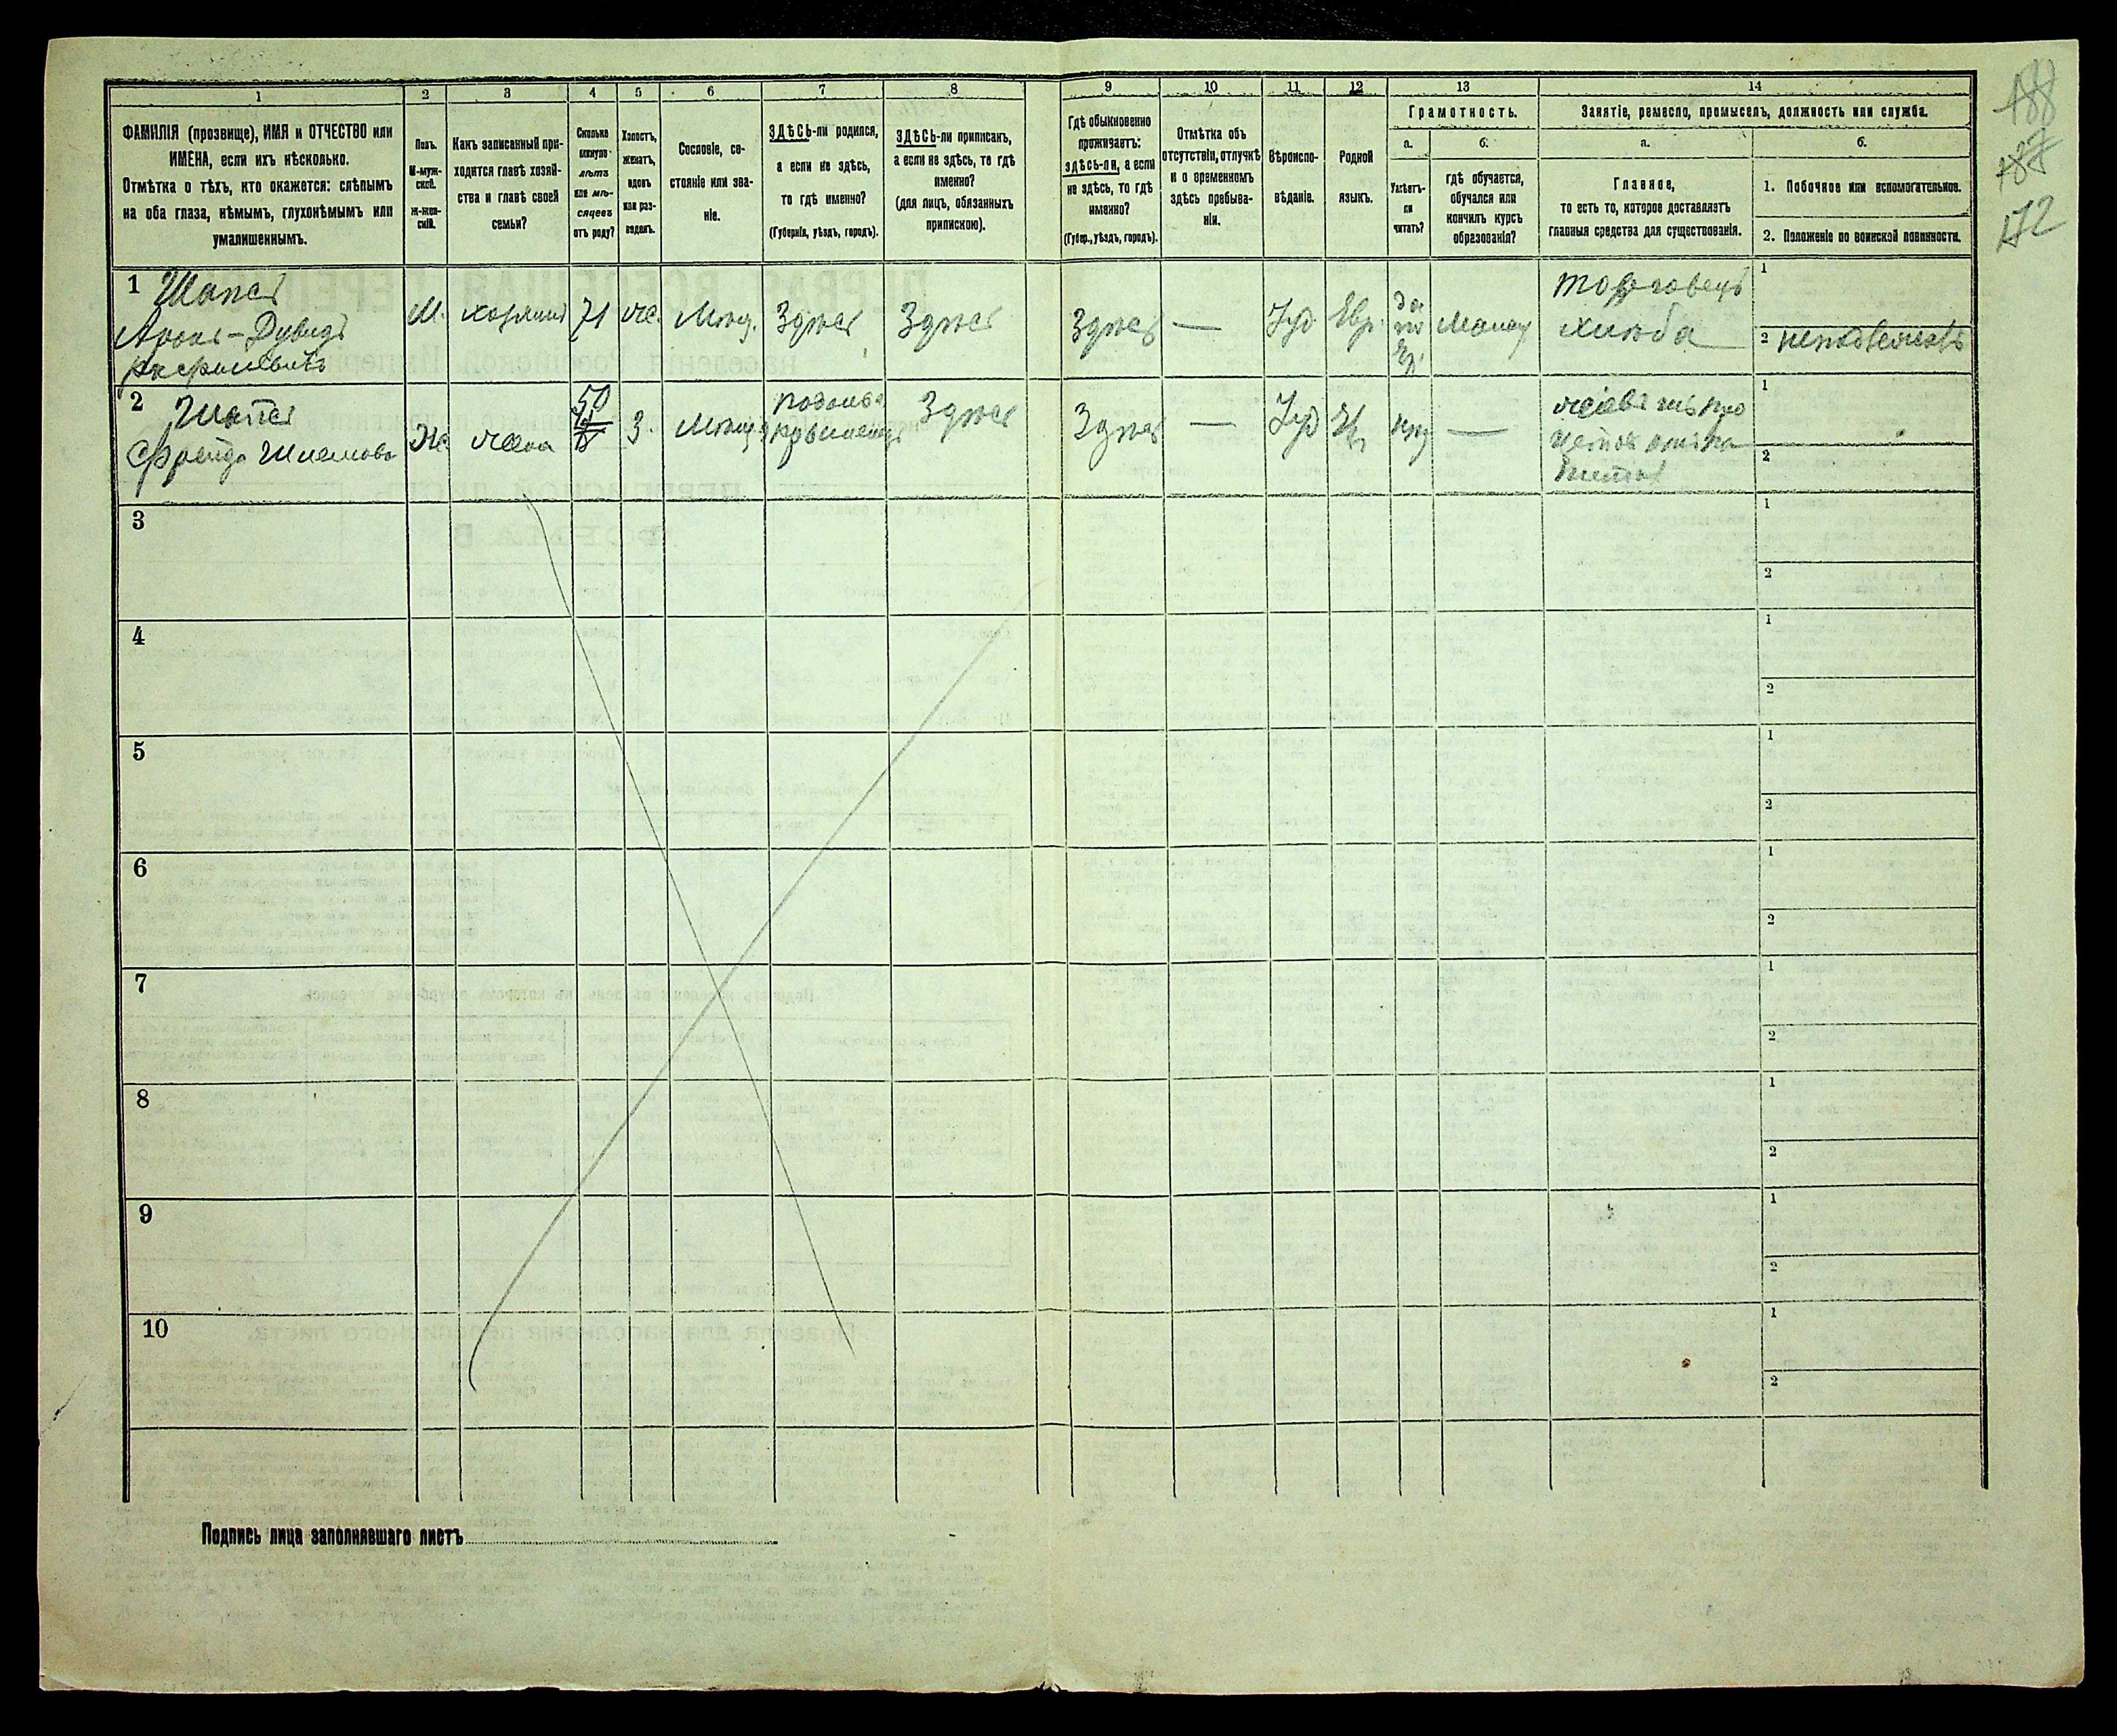 188
188
172
1
2
3
4
5
6
7
8
9
10
11
12
13
14
ФАМИЛІЯ (прозвище), ИМЯ и ОТЧЕСТВО или
ИМЕНА, если ихъ нѣсколько.
Отмѣтка о тѣхъ, кто окажется: слѣпымъ
на оба глаза, нѣмымъ, глухонѣмымъ или
умалишеннымъ.
Полъ.
М-муж-
ской.
Ж-жен-
скій.
Какъ записанный при-
ходится главѣ хозяй-
ства и главѣ своей
семьи?
Сколько
минуло
лѣтъ
или мѣ-
сяцевъ
отъ роду?
Холостъ,
женатъ,
вдовъ
или раз-
веденъ.
Сословіе, со-
стояніе или зва-
ніе.
ЗДѢСЬ-ли родился,
а если не здѣсь,
то гдѣ именно?
(Губернія, уѣздъ, городъ).
ЗДѢСЬ-ли приписанъ,
а если не здѣсь, то гдѣ
именно?
(для лицъ, обязанныхъ
припискою).
Гдѣ обыкновенно
проживаетъ:
здѣсь-ли, а если
не здѣсь, то гдѣ
именно?
(Губер., уѣздъ, городъ).
Отмѣтка объ
отсутствіи, отлучкѣ
и о временномъ
здѣсь пребыва-
ніи.
Вѣроиспо-
вѣданіе.
Родной
языкъ.
Грамотность.
а.
Умѣетъ-
ли
читать?
б.
гдѣ обучается,
обучался или
кончилъ курсъ
образованія?
Занятіе, ремесло, промыселъ, должность или служба.
а.
Главное,
то есть то, которое доставляетъ
главныя средства для существованія.
б.
1. Побочное или вспомогательное.
2. Положеніе по воинской повинности.
1
Арона-Дувидъ
М.
хозяинъ
71
же.
Мѣщ.
Здѣсь
Здѣсь
Здѣсь
—
Іуд.
Евр.
да
торговецъ
хлѣба
1
2
2
Фрейда Шлемова
Ж.
жена
50
З.
Мѣщ.
Здѣсь
Здѣсь
—
Іуд
1
2
3
1
2
4
1
2
5
1
2
6
1
2
7
1
2
8
1
2
9
1
2
10
1
2
Подпись лица заполнявшаго листъ